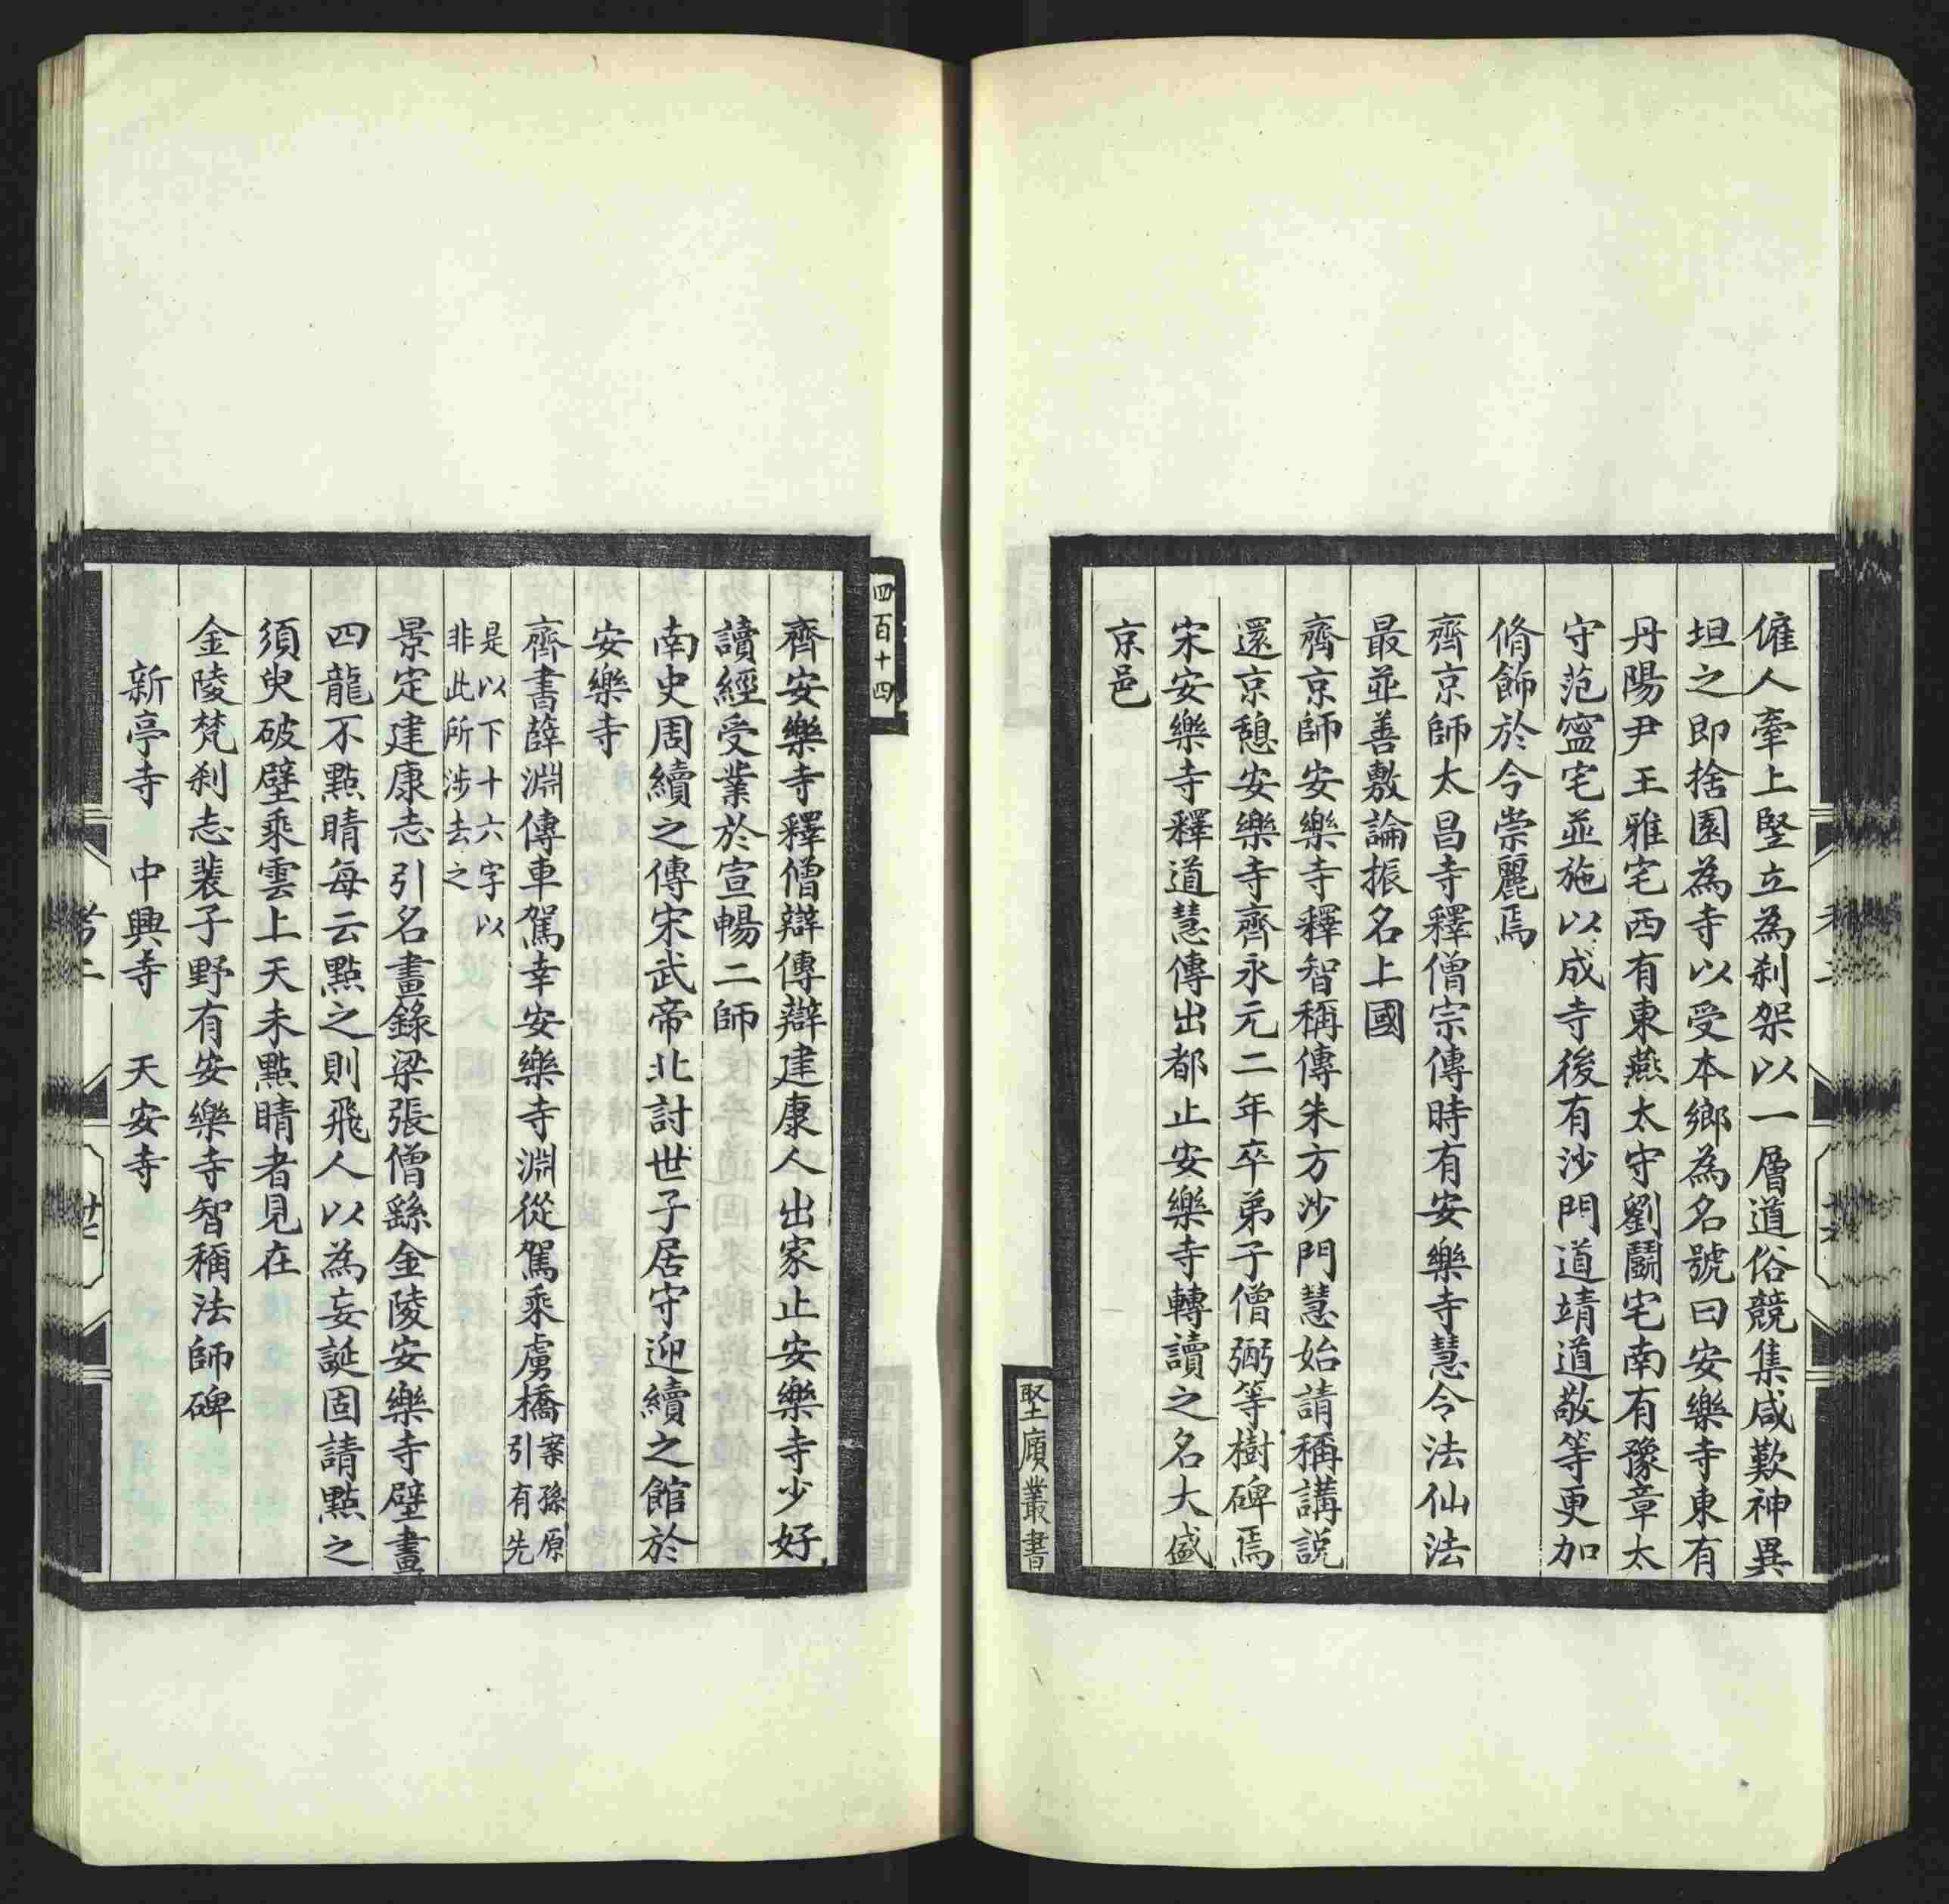 僱人牽上竪立為刹架以一層道俗競集咸歎神異
坦之即捨園為寺以受本鄉為名號曰安樂寺東有
丹陽尹王雅宅西有東燕太守劉鬭宅南有豫章太
守范寗宅並施以成寺後有沙門道靖道敬等更加
脩飾於今崇麗焉
齊京師太昌寺釋僧宗傳時有安樂寺慧令法仙法
最並善敷論振名上國
齊京師安樂寺釋智稱傳朱方沙門慧始請稱講説
還京憩安樂寺齊永元二年卒弟子僧弼等樹碑焉
宋安樂寺釋道慧傳出都止安樂寺轉讀之名大盛
京邑
堅㢑叢書
四百十四
齊安樂寺釋僧辯傳辯建康人出家止安樂寺少好
讀經受業於宣暢二師
南史周續之傳宋武帝北討世子居守迎續之館於
安樂寺
齊書薛淵傳車駕幸安樂寺淵從駕乘虜橋案孫原引有先
是以下十六字以非此所涉去之
景定建康志引名畫錄梁張僧繇金陵安樂寺壁畫
四龍不點睛每云點之則飛人以為妄誕固請點之
須臾破壁乘雲上天未點睛者見在
金陵梵刹志裴子野有安樂寺智稱法師碑
新亭寺　中興寺　天安寺
考二